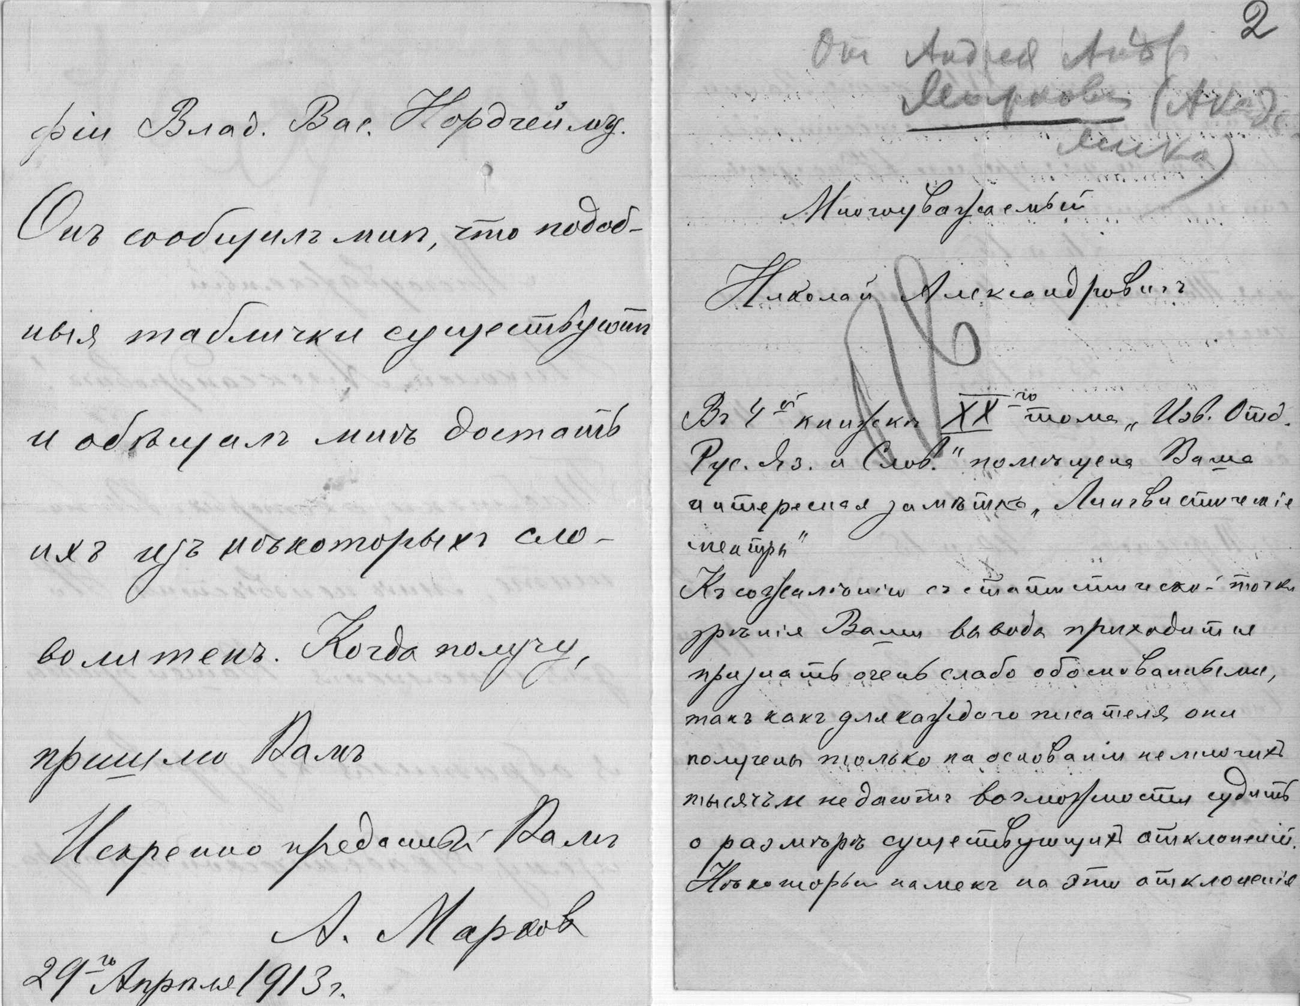 фіи Влад. Вас. Нордгейму.
Онъ сообщилъ мнѣ, что подоб-
ныя таблички существуютъ
и обѣщалъ мнѣ достать
ихъ изъ нѣкоторыхъ сло-
волитенъ. Когда получу,
пришлю Вамъ
Искренно преданный Вамъ
А. Марков
29го Апрѣля 1913 г.
2
От Андрея Андр
Маркова (Акаде-
мика)
Многоуважаемый
Николай Александровичъ
Въ 4ой книжкѣ XXго тома „Изв. Отд.
Рус. Яз. и Слов." помѣщена Ваша
интересная замѣтка „Лингвистическіе
спектры"
Къ сожалѣнію съ статистической точки
зрѣнія Ваши выводы приходится
признать очень слабо обоснованными,
такъ какъ для каждаго писателя они
получены только на основаніи немногихъ
тысячъ и не даютъ возможности судить
о размѣрѣ существующихъ отклоненій.
Нѣкоторый намекъ на эти отклоненія